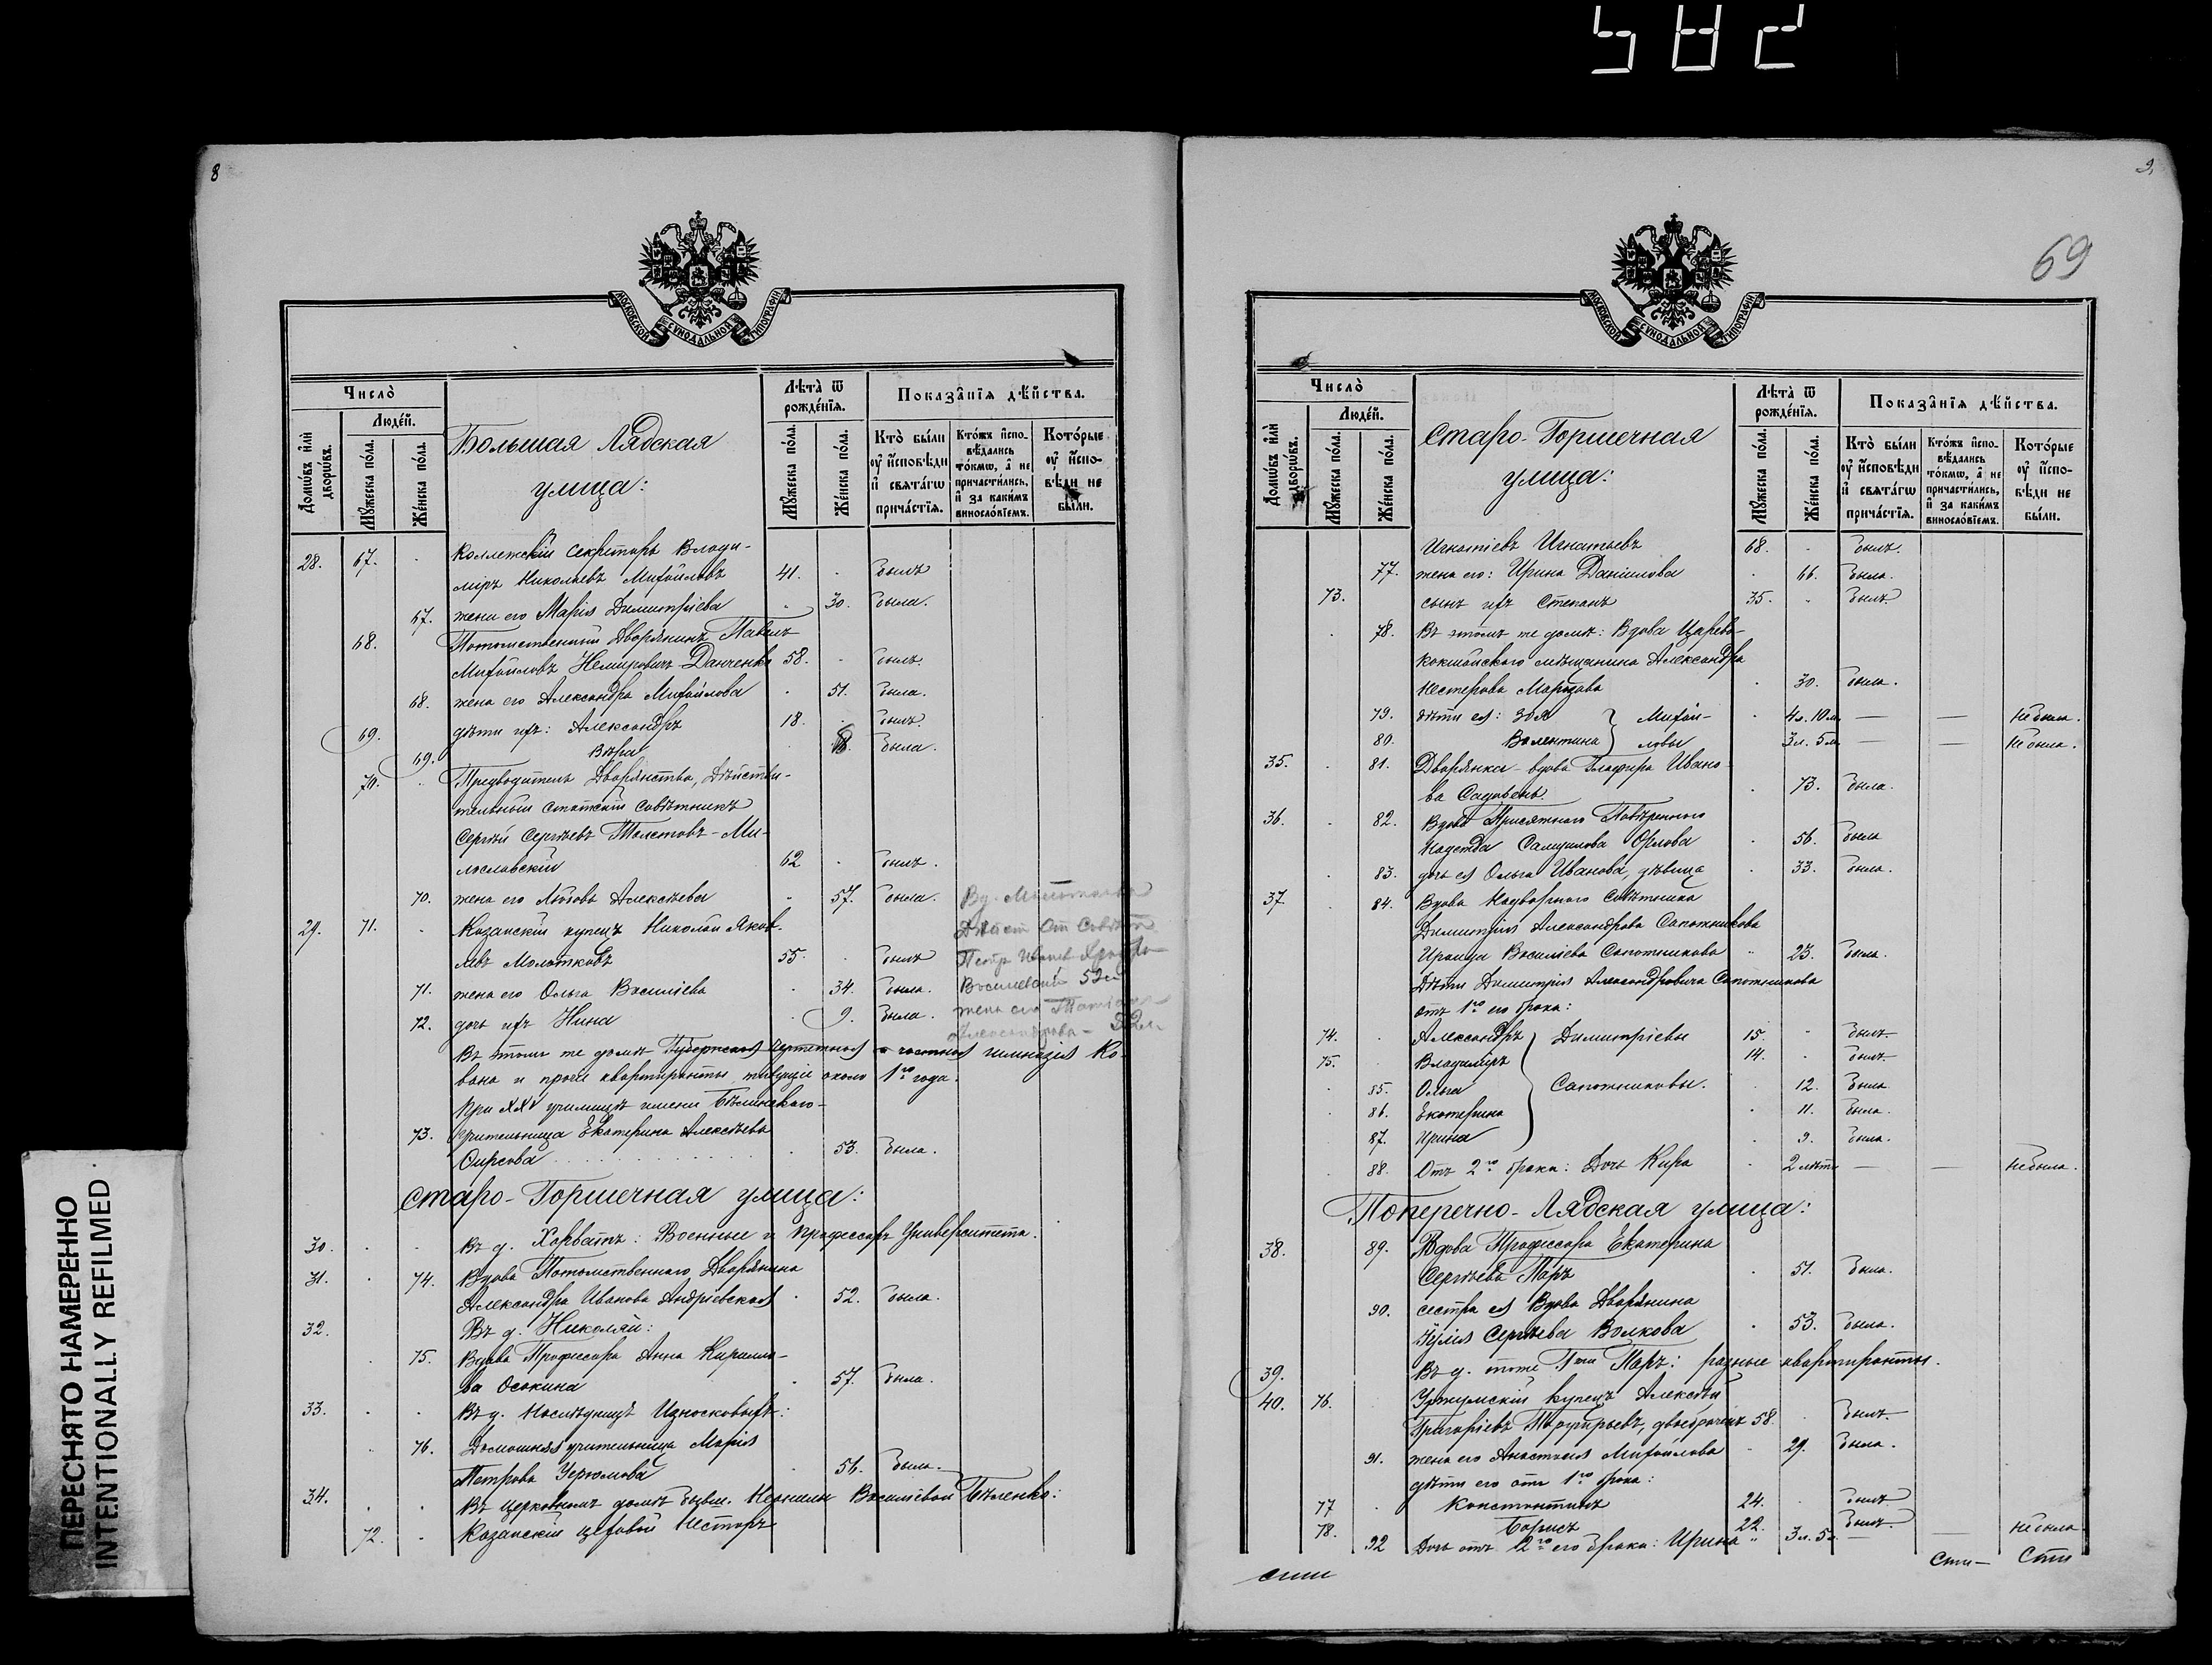 582
8
МОСКОВСКОЙ СѴНОДАЛЬНОЙ ТИПОГРАФІИ
Число̀
Людéй.
Домѡ́въ и҆лѝ дворѡ́въ.
Мꙋ́жеска по́ла.
Же́нска по́ла.
Большая Лядская
улица:
Лѣ́та ѿ рожде́нїѧ.
Мꙋ́жеска по́ла.
Же́нска по́ла.
Показа̑нїѧ дѣ́йства.
Кто̀ бы́ли ᲂу҆ и҆́сповѣди и҆ свѧта́гѡ прича́стїѧ.
Кто́жъ и҆спо-вѣ́дались то́кмѡ, а҆ не причасти́лись, и҆ за каки́мъ винословїемъ.
Кото́рые ᲂу҆ и҆́спо-вѣди не бы́ли.
28. 67. Коллежскій секретарь Влади-
миръ Николаевъ Михайловъ 41. былъ
67. жена его Марія Димитріева 30. была.
68. Потомственный Дворянинъ Павелъ
Михайловъ Немировичъ-Данченко 58. былъ.
68. жена его Александра Михайлова 51. была.
69. дѣти ихъ: Александръ 18. былъ
69. Вѣра 18. была.
70. Предводитель Дворянства, Дѣйстви-
тельный статскій совѣтникъ
Сергѣй Сергѣевъ Толстовъ-Ми-
лославскій 62 былъ.
70. жена его Любовь Алексѣева 57. была.
29. 71. Казанскій купецъ Николай Яков- Дѣйст Ст Совѣт
левъ Молотковъ 55. былъ Петръ
71. жена его Ольга Василіева 34. была. 52
72. дочь ихъ Нина 9. была. жена его
Въ этомъ же домѣ Губернская чертежная и частная гимназія Ко-
вана и проч. квартиранты живущіе около 1го года.
При XXV училищѣ имени Бѣлинскаго-
73. Учительница Екатерина Алексѣева
Фирсова 53. была.
Старо-Горшечная улица:
30. Въ д. Хорватъ: Военные и Профессоръ Университета.
31. 74. Вдова Потомственнаго Дворянина
Александра Иванова Андріевская 52. была.
32. Въ д. Николяй:
75. Вдова Профессора Анна Кирилло-
ва Осокина 57. была.
33. Въ д. наслѣдницъ Износковыхъ:
76. Домашняя учительница Марія
Петрова Уерюмова 56. была.
34. Въ церковномъ домѣ бывш. Неонилы Василіевой Бѣленко:
72. Казанскій цеховой Несторъ
9.
69
МОСКОВСКОЙ СѴНОДАЛЬНОЙ ТИПОГРАФІИ
Число̀
Людéй.
Домѡ́въ и҆лѝ дворѡ́въ.
Мꙋ́жеска по́ла.
Же́нска по́ла.
Старо-Горшечная
улица:
Лѣ́та ѿ рожде́нїѧ.
Мꙋ́жеска по́ла.
Же́нска по́ла.
Показа̑нїѧ дѣ́йства.
Кто̀ бы́ли ᲂу҆ и҆́сповѣди и҆ свѧта́гѡ прича́стїѧ.
Кто́жъ и҆спо-вѣ́дались то́кмѡ, а҆ не причасти́лись, и҆ за каки́мъ винословїемъ.
Кото́рые ᲂу҆ и҆́спо-вѣди не бы́ли.
Игнатіевъ Игнатьевъ 68. былъ.
77. жена его: Ирина Даніилова 66. была.
73. сынъ ихъ Степанъ 35. былъ.
78. Въ этомъ же домѣ: Вдова Царево-
кокшайскаго мѣщанина Александра
Нестерова Морозова 30. была.
79. дѣти ея: Зоя Михай- 4л. 10м. — — не была.
80. Валентина ловы 3л. 5м. — — не была.
35. 81. Дворянка-вдова Глафира Ивано-
ва Садовень. 73. была.
36. 82. Вдова Присяжнаго Повѣреннаго
Надежда Самуилова Орлова 56. была
83. дочь ея Ольга Иванова, дѣвица 33. была.
37. 84. Вдова Надворнаго Совѣтника
Димитрія Александрова Сапожникова
Ираида Василіева Сапожникова 23. была.
Дѣти Димитрія Александровича Сапожникова
отъ 1го его брака:
74. Александръ Димитріевы 15. былъ
75. Владиміръ 14. былъ
85. Ольга Сапожниковы. 12. была
86. Екатерина 11. была.
87. Ирина 9. была.
88. Отъ 2го брака: Дочь Кира 2 лѣтъ — — не была.
Поперечно-Лядская улица:
38. 89. Вдова Профессора Екатерина
Сергѣева Паръ 51. была.
90. сестра ея Вдова Дворянина
Юлія Сергѣева Волкова 53. была.
39. В д. тоже Гжи Паръ: разные квартиранты.
40. 76. Уржумскій купецъ Алексѣй
Григоріевъ двоебраченъ 58 былъ.
91. жена его Анастасія Михайлова 29. была.
дѣти его отъ 1го брака:
77 Константинъ 24. былъ
78. Борисъ 22. былъ.
92 Дочь отъ 2го его брака: Ирина 3л. 5м. — не была
ПЕРЕСНЯТО НАМЕРЕННО
INTENTIONALLY REFILMED